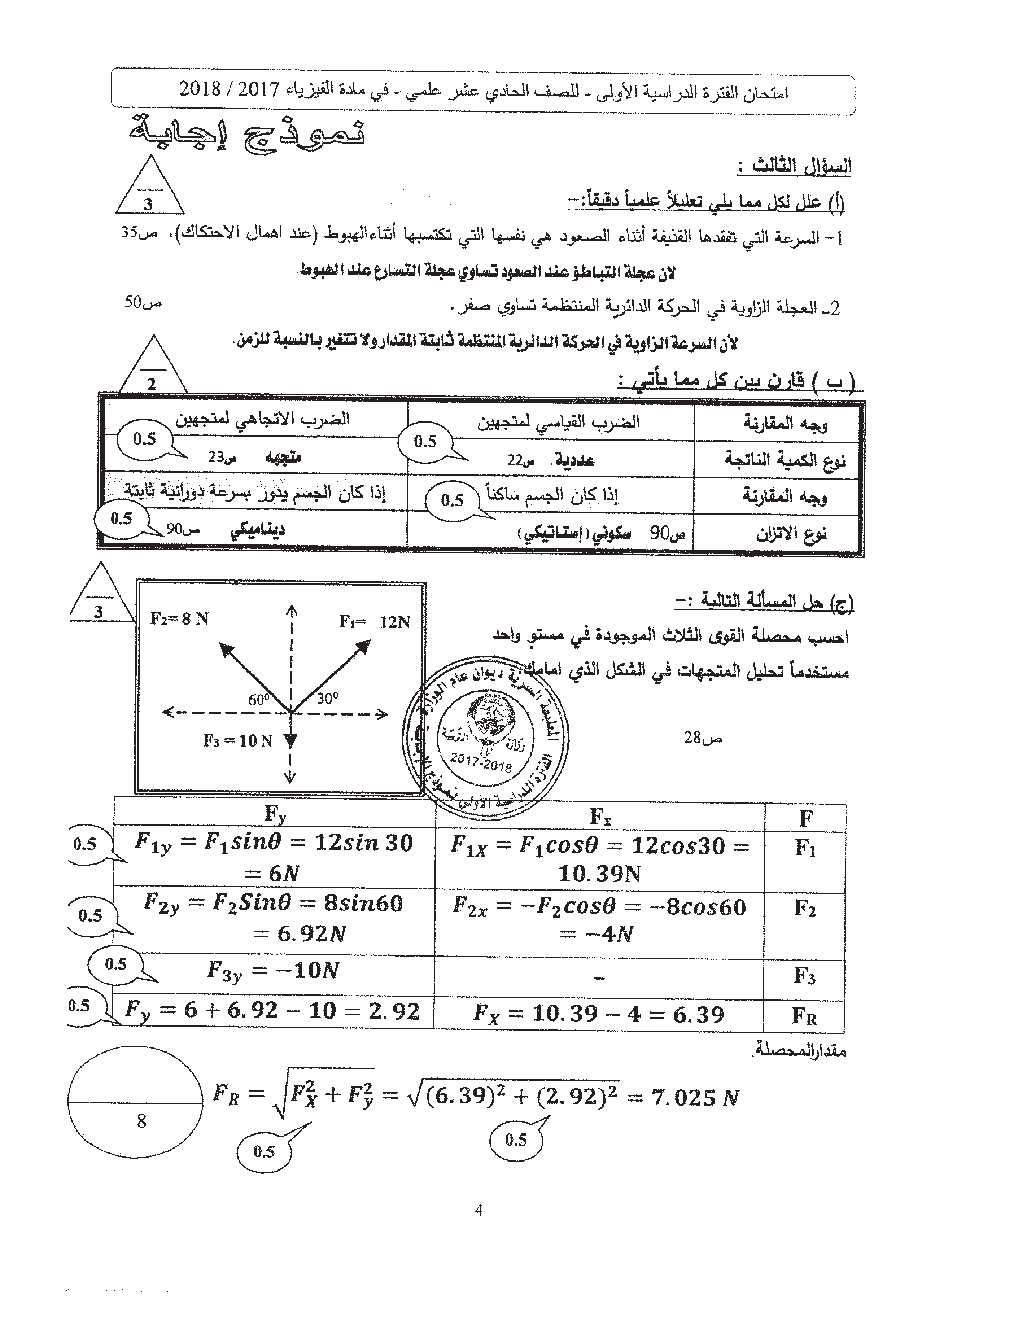 امتحان الفترة الدراسية الأولى - للصف الحادي عشر علمي - في مادة الفيزياء 2017 / 2018
نموذج إجابة
السؤال الثالث :
3
(أ) علل لكل مما يلي تعليلاً علمياً دقيقاً:-
1- السرعة التي تفقدها القذيفة أثناء الصعود هي نفسها التي تكتسبها أثناء الهبوط (عند اهمال الاحتكاك). ص35
لان عجلة التباطؤ عند الصعود تساوي عجلة التسارع عند الهبوط.
2- العجلة الزاوية في الحركة الدائرية المنتظمة تساوي صفر. ص50
لأن السرعة الزاوية في الحركة الدائرية المنتظمة ثابتة المقدار ولا تتغير بالنسبة للزمن.
2
( ب ) قارن بين كل مما يأتي :
وجه المقارنة الضرب القياسي لمتجهين الضرب الاتجاهي لمتجهين
نوع الكمية الناتجة عددية. ص22 0.5 متجهه ص23 0.5
وجه المقارنة إذا كان الجسم ساكناً إذا كان الجسم يدور بسرعة دورانية ثابتة
نوع الاتزان سكوني (أستاتيكي) ص90 0.5 ديناميكي ص90 0.5
3
(ج) حل المسألة التالية :-
احسب محصلة القوى الثلاث الموجودة في مستو واحد
مستخدماً تحليل المتجهات في الشكل الذي امامك
ص28
F₂= 8 N F₁= 12N
60⁰ 30⁰
F₃ = 10 N
2017-2018
F Fₓ Fy
F₁ F₁X = F₁cosθ = 12cos30 = 10.39N F₁y = F₁sinθ = 12sin 30 = 6N 0.5
F₂ F₂x = −F₂cosθ = −8cos60 = −4N F₂y = F₂Sinθ = 8sin60 = 6.92N 0.5
F₃ – F₃y = −10N 0.5
FR FX = 10.39 − 4 = 6.39 Fy = 6 + 6.92 − 10 = 2.92 0.5
مقدار المحصلة.
FR = √(Fx² + Fy²) = √((6.39)² + (2.92)²) = 7.025 N
0.5 0.5
8
4